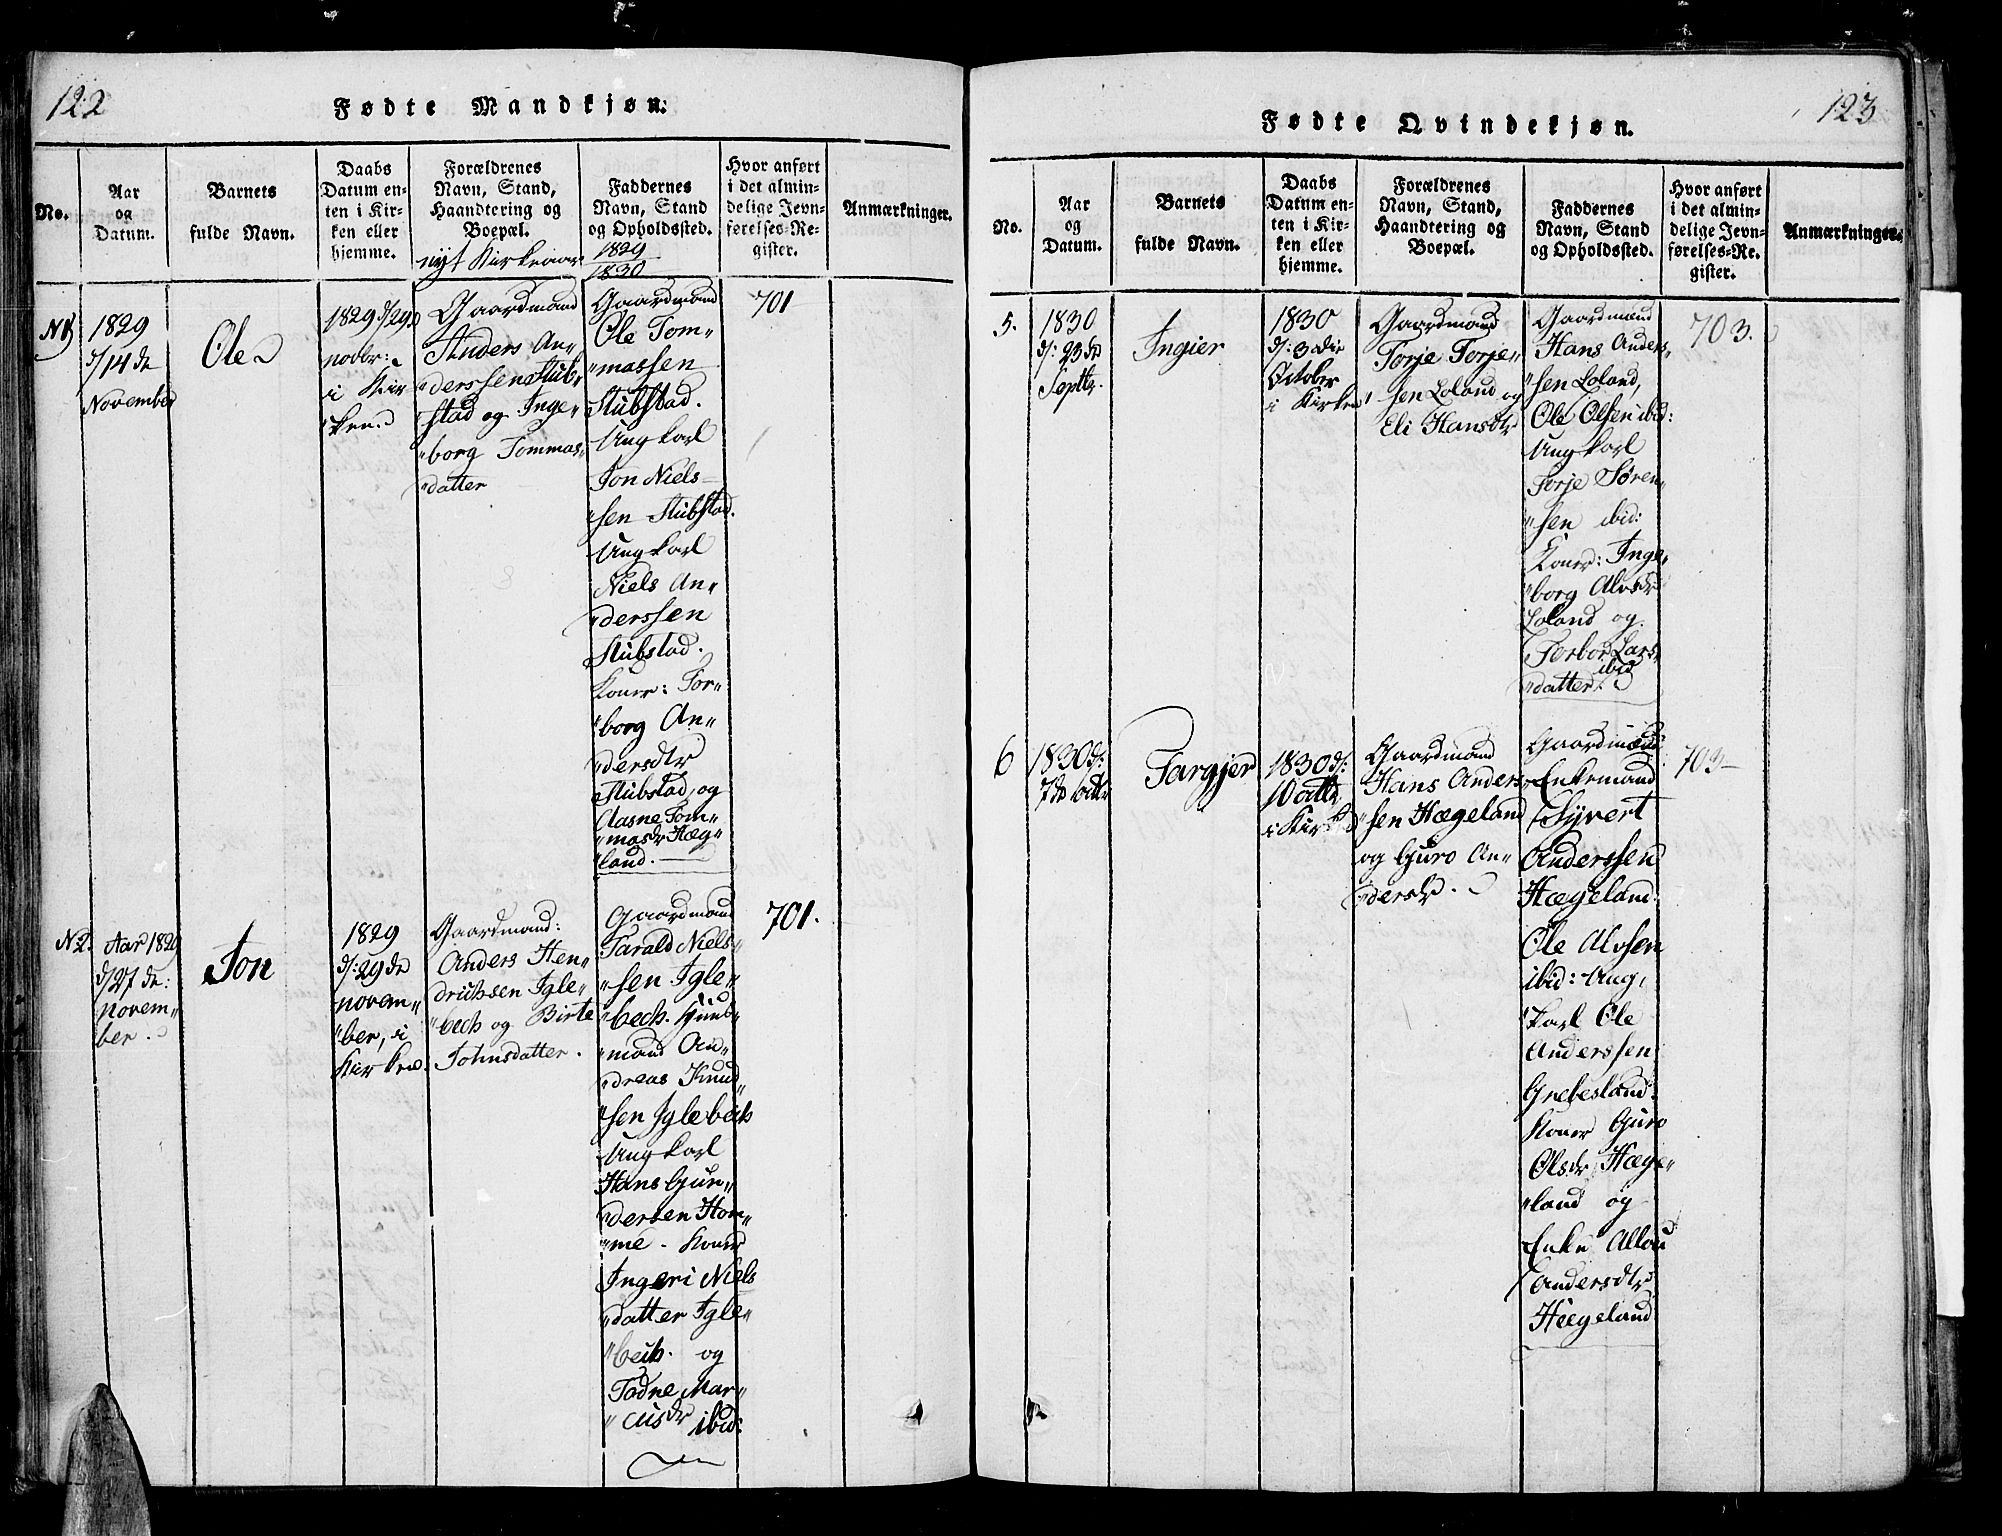 122
Fødte Mandkjøn.
No.
Aar
og
Datum.
Barnets
fulde Navn.
Daabs
Datum en-
ten i Kir-
ken eller
hjemme.
Forældrenes
Navn, Stand,
Haandtering og
Boepæl.
Faddernes
Navn, Stand
og Opholdssted.
Hvor anført
i det almin-
delige Jevn-
førelses-Re-
gister.
Anmærkninger.
nyt Kirkeaar 1829
1830
N1
1829
d/14 de
November
Ole
1829 d/29d
novbr:
i Kir
"ken.
Gaardmand
Anders An"
"derssen Stub"
"stad og Inge"
"borg Tommas"
"datter
Gaardmand
Ole Tom"
"massen
Stubstad.
Ungkarl
Jon Niels-
"sen Stubstad.
Ungkarl
Niels An"
"derssen
Stubstad.
Koner: Tor"
"borg An"
"dersdtr
Stubstad, og
Aasne Tom"
"masdr Hæg"
"land.
701
N2.
Aar 1829
d/27 de:
novem"
ber.
Jon
1829
d/:29 de
novem"
"ber, i
Kirken:
Gaardmand:
Anders Hen"
drichsen Igle"
"bech og Birte
Johnsdatter.
Gaardmand
Tarald Niels"
"sen Igle"
"bech. Huus"
"mand An"
"dreas Knud"
"sen Iglebech
Ungkarl
Hans Gun"
"dersen Hom"
"me. Koner
Ingeri Niels
"datter Igle"
"bech. og
Todne Mar"
"cusdr ibid:
701.
123
Fødte Qvindekjøn.
No.
Aar
og
Datum.
Barnets
fulde Navn.
Daabs
Datum en-
ten i Kir-
ken eller
hjemme.
Forældrenes
Navn, Stand,
Haandtering og
Boepæl.
Faddernes
Navn, Stand
og Opholdssted.
Hvor anført
i det almin-
delige Jevn-
førelses-Re-
gister.
Anmærkninger.
5.
1830
d/: 23 de
Septbr.
Ingier
1830
d/: 3 die
October
i Kirken
Gaardmand
Torje Torje"
"sen Loland og
Eli Hansdtr
Gaardmand
Hans Anders"
"sen Loland,
Ole Olsen ibid:
Ungkarl
Torje Søren"
"sen ibid:
Koner: Inge"
"borg Alvsdr
Loland og
Terbor Lars"
ibid
"datter.
703.
6
1830 d/:
7de octbr
Targjer
1830 d:
10 octbr
i Kirken
Gaardmand
Hans Anders"
"sen Hægeland
og Guro An"
"dersdr.
Gaardmænd
Enkemand
Syvert
Anderssen
Hægeland.
Ole Alvsen
ibid: Ung,
"karl Ole
Anderssen
Grebesland.
Koner Guro
Olsdr Hæge"
"land og
Enke Allou
Andersdtr
Hægeland
703